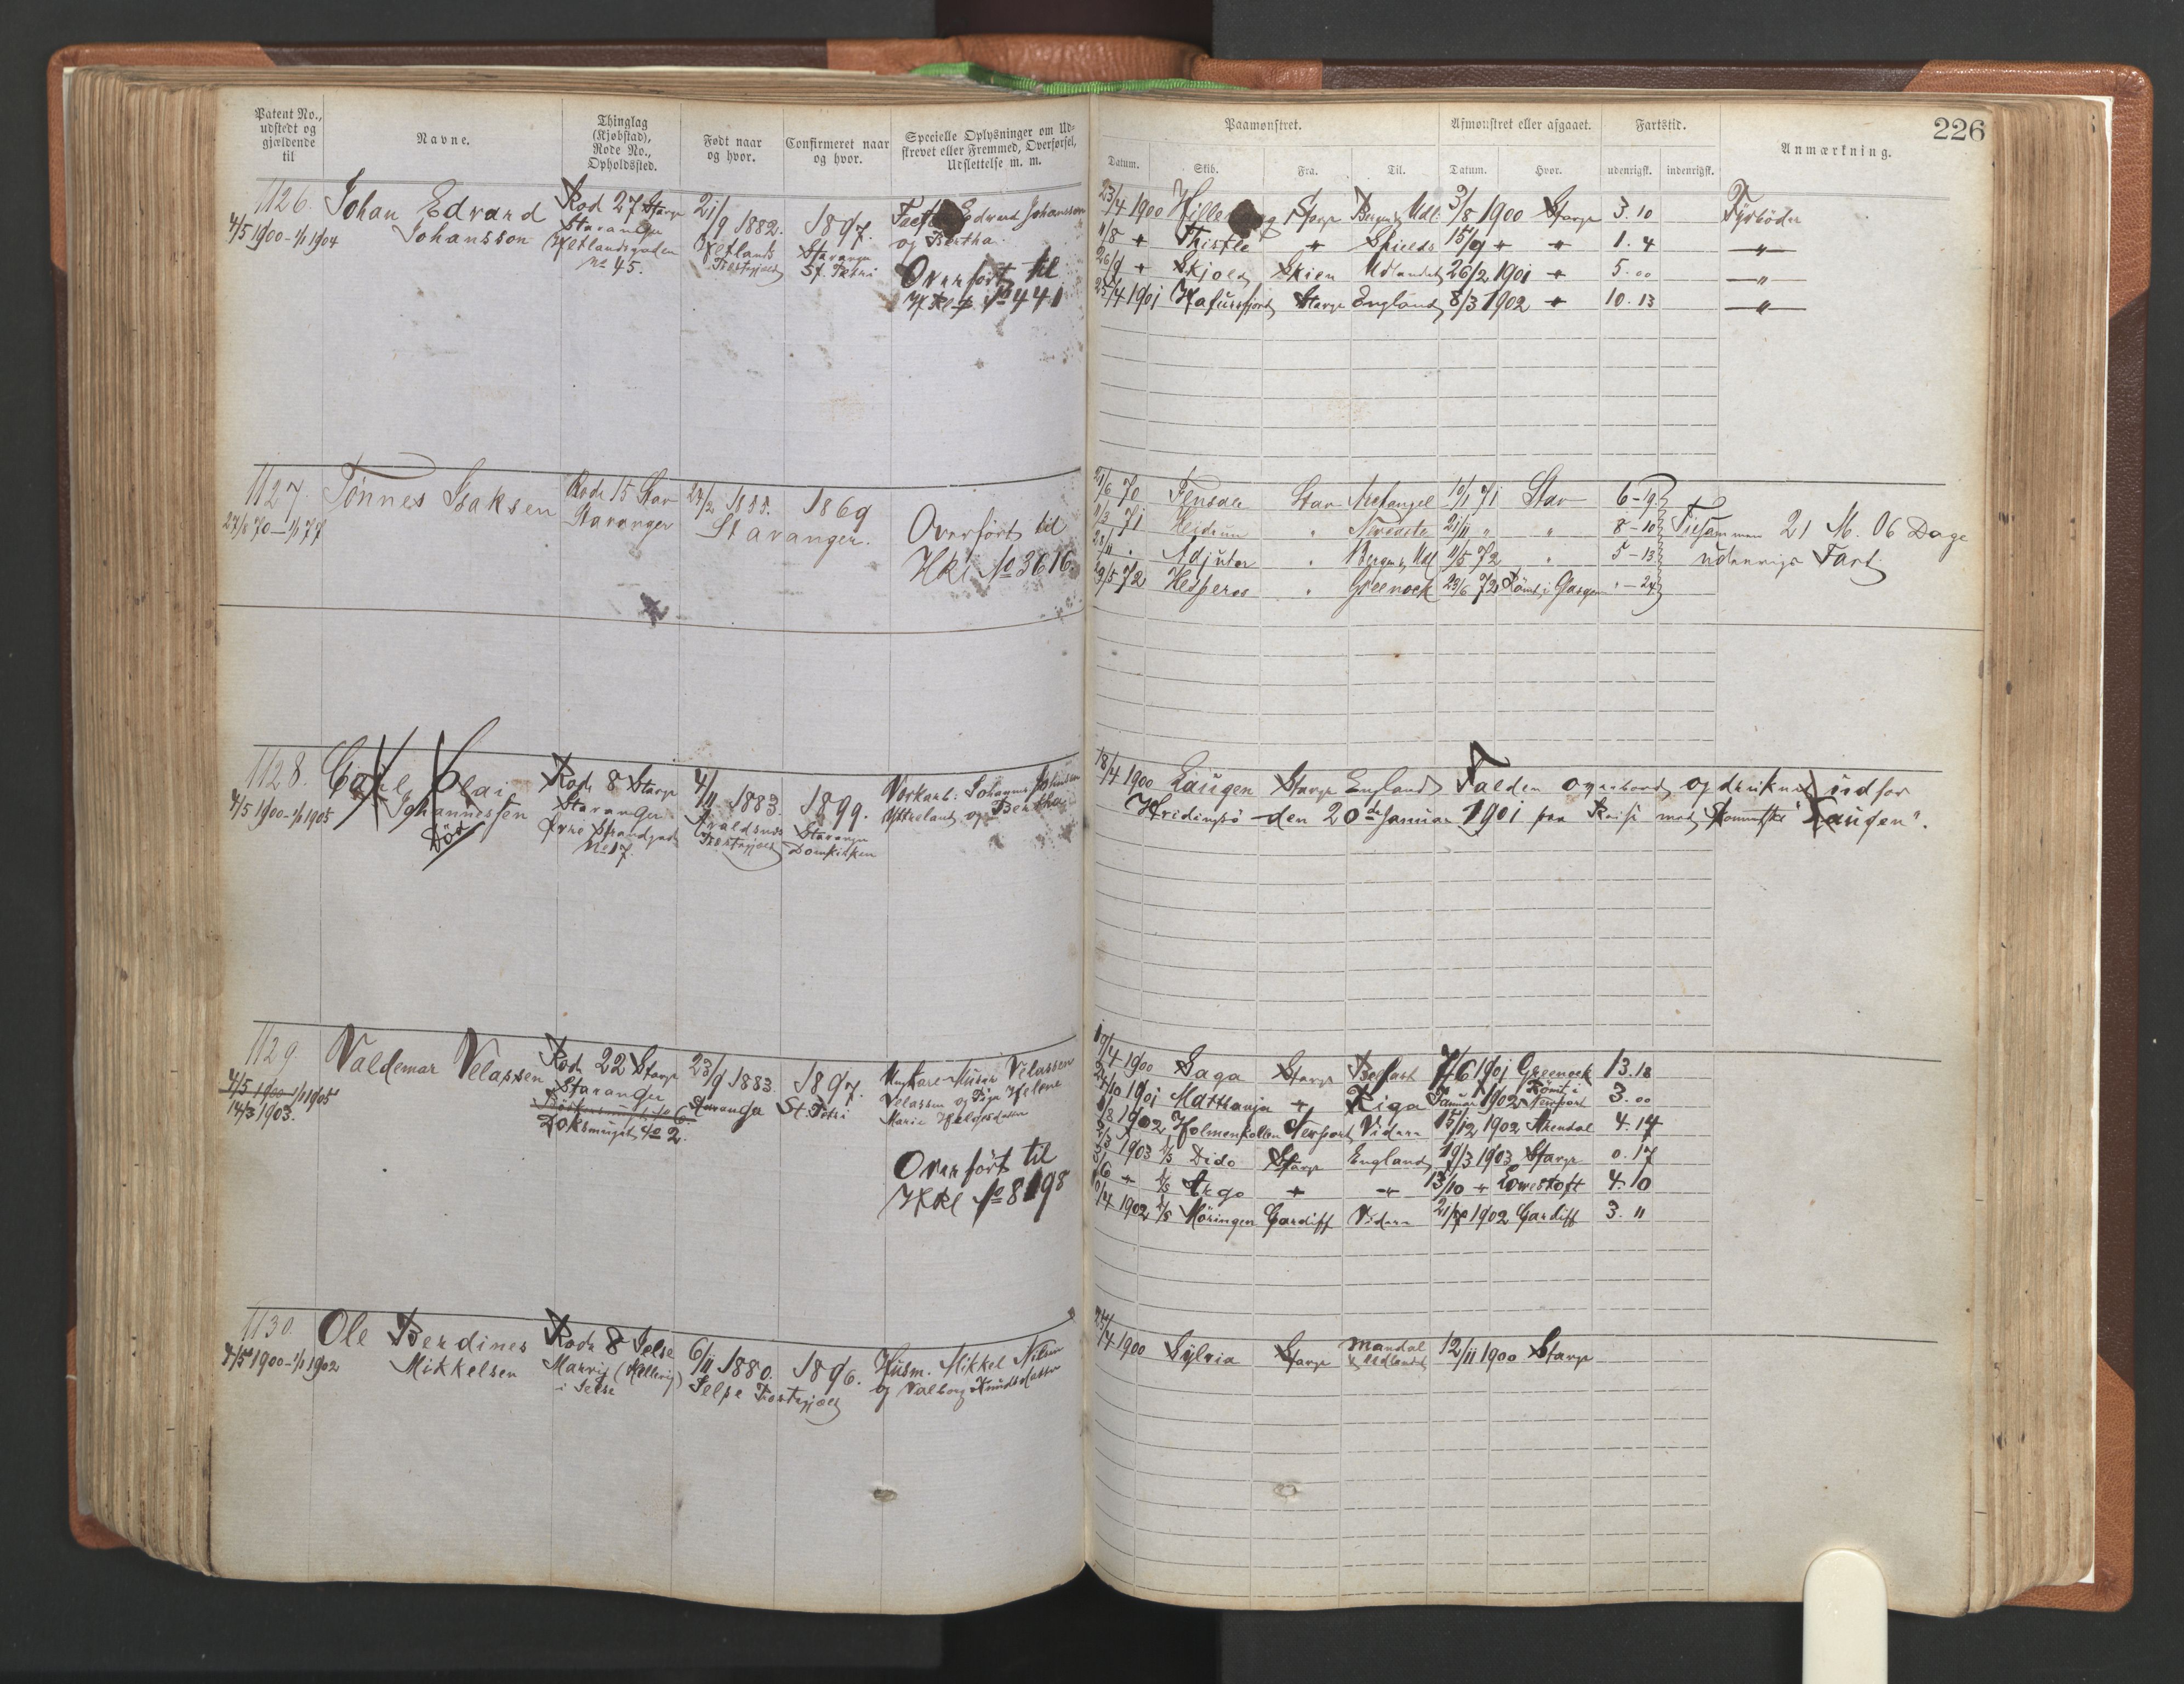 Patent No., udstedt og gjældende til
Navne.
Thinglag (Kjøbstad), Rode No., Opholdssted.
Født naar og hvor.
Confirmeret naar og hvor.
Specielle Oplysninger om Udskrevet eller Fremmed, Overførsel, Udslettelse m. m.
Paamønstret.
Afmønstret eller afgaaet.
Fartstid.
Anmærkning.
226
Datum.
Skib.
Fra.
Til.
Datum.
Hvor.
udenrigsk.
indenrigsk.
1126. Johan Edvard Rode 27 Stavgr 21/9 1882. 1897. Edvard Johansson
4/5 1900 - 1/1 1904 Johansson Stavanger Hetlands Stavanger og Bertha.
Hetlandsgaden Præstegjæld St. Petri Overført til
No 45. Hkl No 441
23/4 1900 Hille g Stavgr Bergen & Udl. 3/8 1900 Stavgr 3. 10 Fyrbøder
11/8 " Thistle " Shields 15/9 " " 1. 4 "
26/9 " Skjold Skien Udlandet 26/2 1901 " 5. 00 "
25/4 1901 Hafursfjord Stavgr England 8/3 1902 " 10. 13 "
1127. Tønnes Isaksen Rode 15 Stav 24/2 1855. 1869
27/6 70 - 1/1 77 Stavanger Stavanger. Overført til
Hkl No 3616.
21/6 70 Fensale Stav Archangel 10/1 71 Stav 6 - 19
11/3 71 Heidrun " 21/11 " " 8 - 10 Tilsammen 21 M. 06 Dage
28/11 " Adjutor " Bergen & Udl 11/5 72 " 5 - 13 udenrigs Fart.
29/5 72 Hesperos " Greenock 23/6 72 Rømt i Glasgow " - 24
1128. Carl Olai Rode 8 Stavgr 4/11 1883. 1899. Værkarb: Johannes Johnsen
4/5 1900 - 1/1 1905 Johannessen Stavanger Avaldsnes Stavanger og Bertha
Død Øvre Strandgade Præstegjæld Domkirken
No 17.
18/4 1900 Laugen Stavgr England Falden overbord og druknet udfor
Hvidingsø den 20de Januar 1901 paa Reise med "Laugen".
1129. Valdemar Velassen Rode 22 Stavgr 23/9 1883. 1897. Velassen
4/5 1900 - 1/1 1905 Stavanger Stavanger St. Petri Velassen og Helene
14/3 1903. No 6. Marie
No 2. Overført til
Hkl No 8198
19/4 1900 Saga Stavgr Belfast 7/6 1901 Greenock 13. 18
24/10 1901 Matteanja " Riga Januar 1902 Rømt i Newport 3. 00
1/8 1902 Holmenkollen Newport Videre 15/12 1902 Arendal 4. 14
2/3 1903 D/S Dido Stavgr England 19/3 1903 Stavgr 0. 17
3/6 " D/S Argo " " 13/10 " Lowestoft 4. 10
10/4 1902 D/S Møringen Cardiff Videre 21/7 1902 Cardiff 3. 11
1130. Ole Berdines Rode 8 Jelse 6/11 1880. 1896. Husm. Mikkel Nilsen
4/5 1900 - 1/1 1902 Mikkelsen Marvig (Hellevig) Jelse Præstegjæld og Valborg Knudsdatter
i Jelse
25/4 1900 Sylvia Stavgr Mandal & Udlandet 12/11 1900 Stavgr